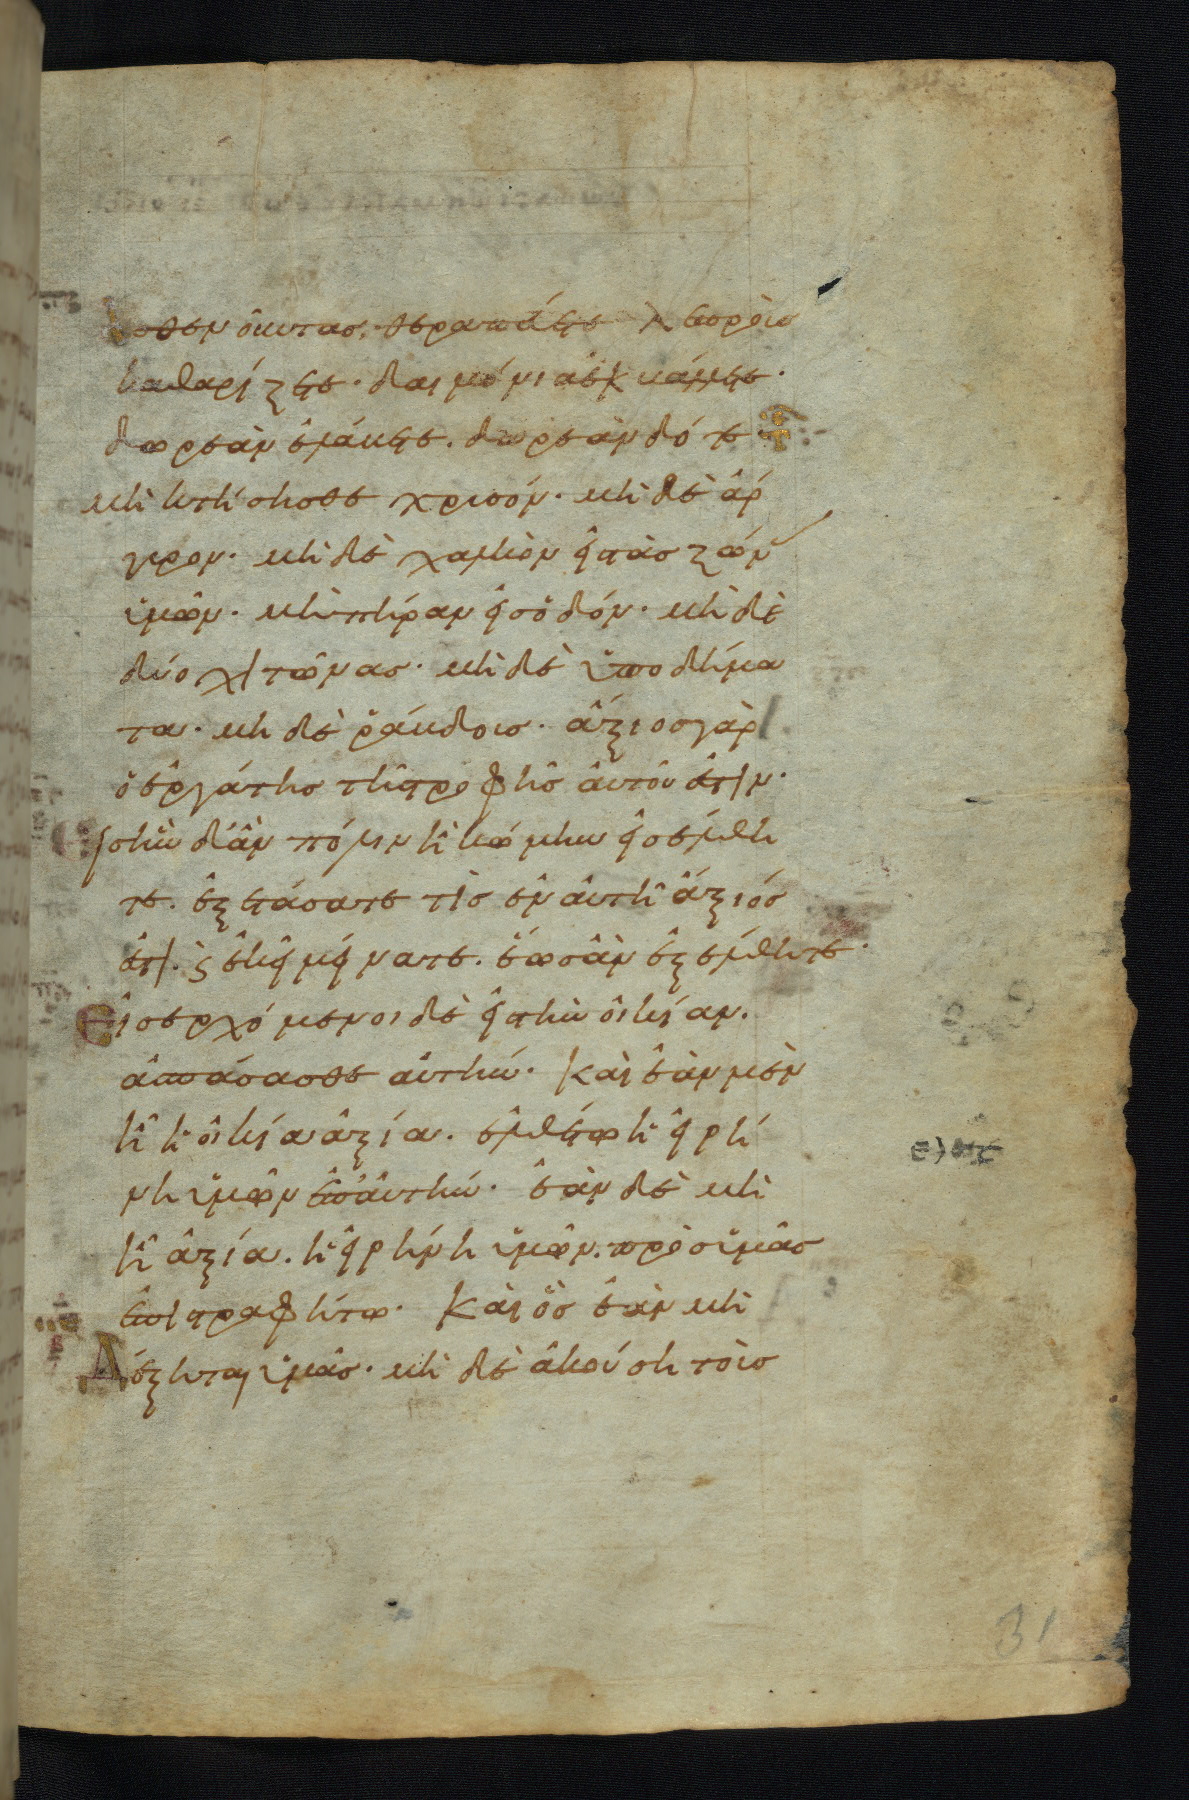 ἀσθενοῦντας. θεραπεύετε λεπροὺς
καθαρίζετε. δαιμόνια ἐκβάλλετε.
δωρεὰν ἐλάβετε. δωρεὰν δότε.
μὴ κτήσησθε χρυσόν. μὴ δὲ ἄρ
γυρον. μὴ δὲ χαλκὸν εἰς τὰς ζών
ὑμῶν. μὴ πήραν εἰς ὁδόν. μὴ δὲ
δύο χιτῶνας. μὴ δὲ ὑποδήμα
τα. μὴ δὲ ῥάβδους. ἄξιος γὰρ
ὁ ἐργάτης τῆς τροφῆς αὐτοῦ ἐστιν.
εἰς ἣν δ' ἂν πόλιν ἢ κώμην εἰσέλθη
τε. ἐξετάσατε τίς ἐν αὐτῆ ἄξιός
ἐστι. κἀκεῖ μείνατε. ἕως ἂν ἐξέλθητε.
Εἰσερχόμενοι δὲ εἰς τὴν οἰκίαν.
ἀσπάσασθε αὐτήν. Καὶ ἐὰν μὲν
ἦ ἡ οἰκία ἀξία. ἐλθέτω ἡ εἰρή
νη ὑμῶν ἐπ' αὐτήν. ἐὰν δὲ μὴ
ἦ ἀξία. ἡ εἰρήνη ὑμῶν. πρὸς ὑμᾶς
ἐπιστραφήτω. Καὶ ὃς ἐὰν μὴ
Δέξηται ὑμᾶς. μὴ δὲ ἀκούση τοὺς
31